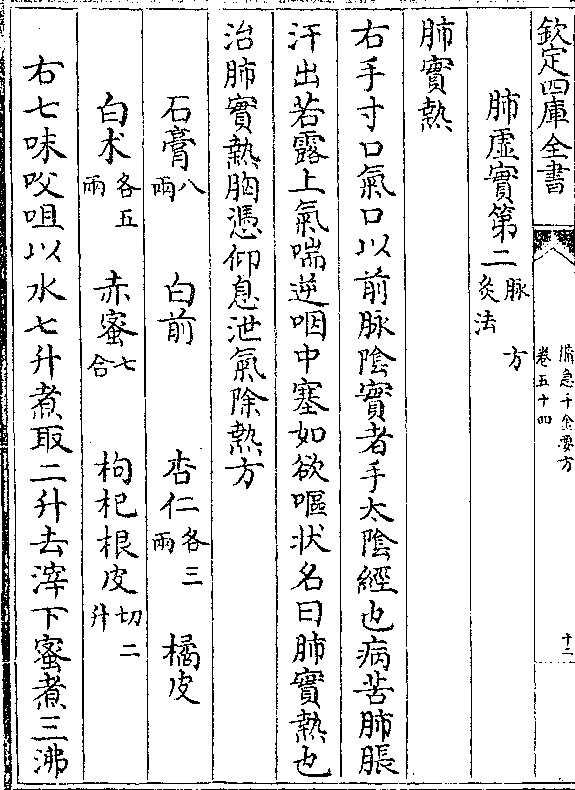 欽定四庫全書
備急千金要方
卷五十四
十二
肺虛實第二 脈 方 灸法
肺實熱
右手寸口氣口以前脈陰實者手太陰經也病苦肺脹
汗出若露上氣喘逆咽中塞如欲嘔狀名曰肺實熱也
治肺實熱胸憑仰息泄氣除熱方
石膏八兩 白前 杏仁各三兩 橘皮
白朮各五兩 赤蜜七合 枸杞根皮切二升
右七味㕮咀以水七升煮取二升去滓下蜜煮三沸